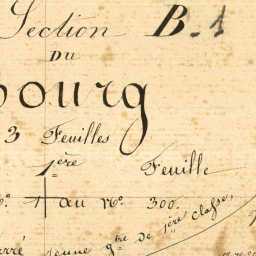 Section B.1
DU
bourg
3 Feuilles
1ère Feuille
No. 1 au No. 300.
gbre de 1ère classe,